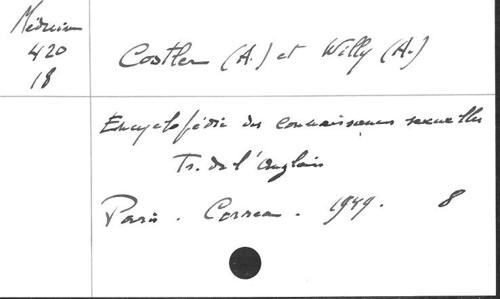 Médecine
420
18
Costler (A.) et Willy (A.)
Encyclopédie des connaissances sexuelles
Tr. de l'Anglais
Paris. Correa. 1949. 8